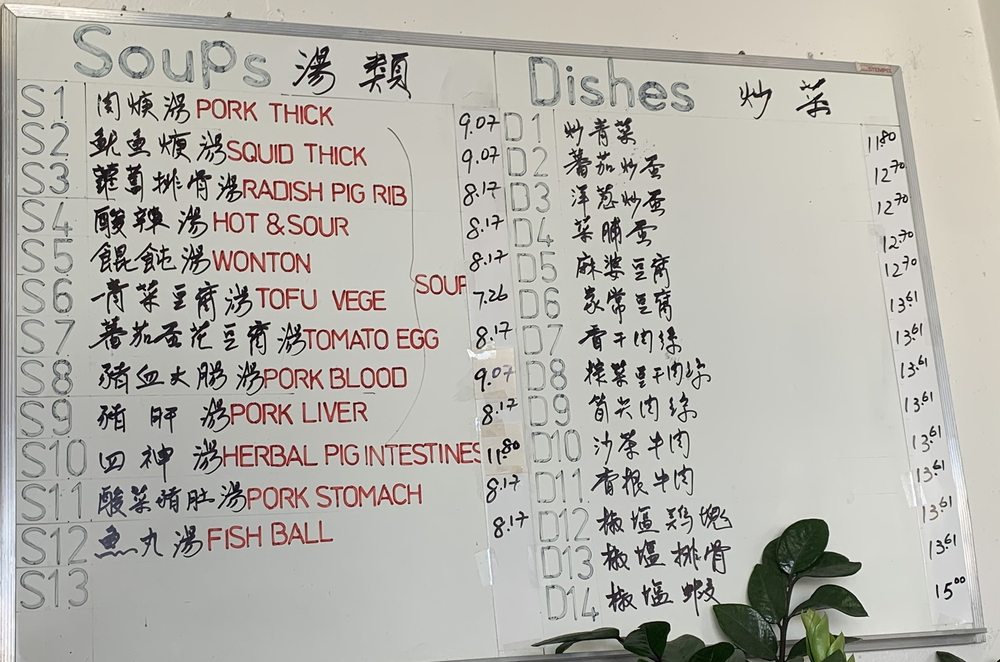 Soups 湯類
S1 肉焿湯 PORK THICK 9.07
S2 魷魚焿湯 SQUID THICK 9.07
S3 蘿蔔排骨湯 RADISH PIG RIB 8.17
S4 酸辣湯 HOT & SOUR 8.17
S5 餛飩湯 WONTON 8.17
SOUP
S6 青菜豆腐湯 TOFU VEGE 7.26
S7 蕃茄蛋花豆腐湯 TOMATO EGG 8.17
S8 豬血大腸湯 PORK BLOOD 9.07
S9 豬肝湯 PORK LIVER 8.17
S10 四神湯 HERBAL PIG INTESTINES 11.80
S11 酸菜豬肚湯 PORK STOMACH 8.17
S12 魚丸湯 FISH BALL 8.17
S13
Dishes 炒菜
D1 炒青菜 11.80
D2 蕃茄炒蛋 12.70
D3 洋葱炒蛋 12.70
D4 菜脯蛋 12.70
D5 麻婆豆腐 12.70
D6 家常豆腐 13.61
D7 香干肉絲 13.61
D8 榨菜豆干肉絲 13.61
D9 筍尖肉絲 13.61
D10 沙茶牛肉 13.61
D11 香根牛肉 13.61
D12 椒塩鷄塊 13.61
D13 椒塩排骨 13.61
D14 椒塩蝦 15.00